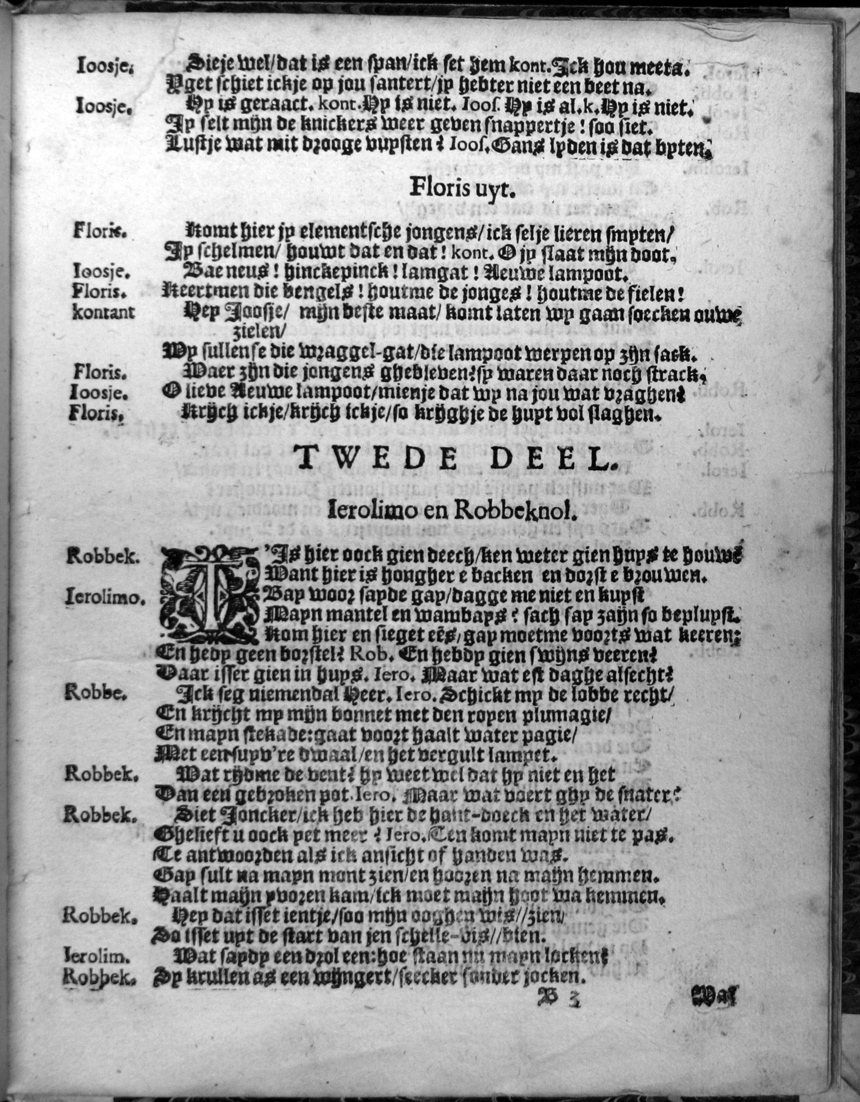 Ioosje. Sieje wel/dat is een span/ick set hem kont. Ick hou meeta.
Yget schiet ickje op jou santert/jy hebter niet een beet na.
Ioosje. Hy is geraact. kont. Hy is niet. Ioos. Hy is al. k. Hy is niet.
Iy selt mijn de knickers weer geven snappertje! soo siet.
Lustje wat mit drooge vuysten? Ioos. Gans lyden is dat byten.
Floris uyt.
Floris. Komt hier jy elementsche jongens/ick selje lieren smyten/
Iy schelmen/ houwt dat en dat! kont. O jy slaat mijn doot.
Ioosje. Bae neus! hinckepinck! lamgat! Aeuwe lampoot.
Floris. Keertmen die bengels! houtme de jonges! houtme de fielen!
kontant Hey Joosje/ mijn beste maat/ komt laten wy gaan soecken ouwe
zielen/
Wy sullense die wraggel-gat/die lampoot werpen op zijn sack.
Floris. Waer zijn die jongens ghebleven? sy waren daar noch strack.
Ioosje. O lieve Aeuwe lampoot/mienje dat wy na jou wat vraghen?
Floris. Krijch ickje/krijch ickje/so krijghje de huyt vol slaghen.
TWEDE DEEL.
Ierolimo en Robbeknol.
Robbek. T'Is hier oock gien deech/ken weter gien huys te houwe
Want hier is hongher e backen en dorst e brouwen.
Ierolimo. Bay woor sayde gay/dagge me niet en kuyst
Mayn mantel en wambays? sach say zayn so bepluyst.
Kom hier en sieget eēs/gay moetme voorts wat keeren;
En hedy geen borstel? Rob. En hebdy gien swijns veeren?
Daar isser gien in huys. Iero. Maar wat est daghe alsecht?
Robbe. Ick seg niemendal Heer. Iero. Schickt my de lobbe recht/
En krijcht my mijn bonnet met den royen plumagie/
En mayn stekade: gaat voort haalt water pagie/
Met een suyv're dwaal/en het vergult lampet.
Robbek. Wat rijdme de vent? hy weet wel dat hy niet en het
Dan een gebroken pot. Iero. Maar wat voert ghy de snater?
Robbek. Siet Joncker/ick heb hier de hant-doeck en het water/
Ghelieft u oock yet meer? Iero. Ten komt mayn niet te pas.
Te antwoorden als ick ansicht of handen was.
Gay sult na mayn mont zien/en hooren na maijn hemmen.
Haalt maijn yvoren kam/ick moet maijn hoot wa kemmen.
Robbek. Hey dat isset ientje/soo mijn ooghen wis//zien
So isset uyt de start van jen schelle-vis//bien.
Ierolim. Wat saydy een drol een: hoe staan nu mayn locken?
Robbek. Sy krullen as een wijngert/seecker sonder jocken.
B 3 Wat